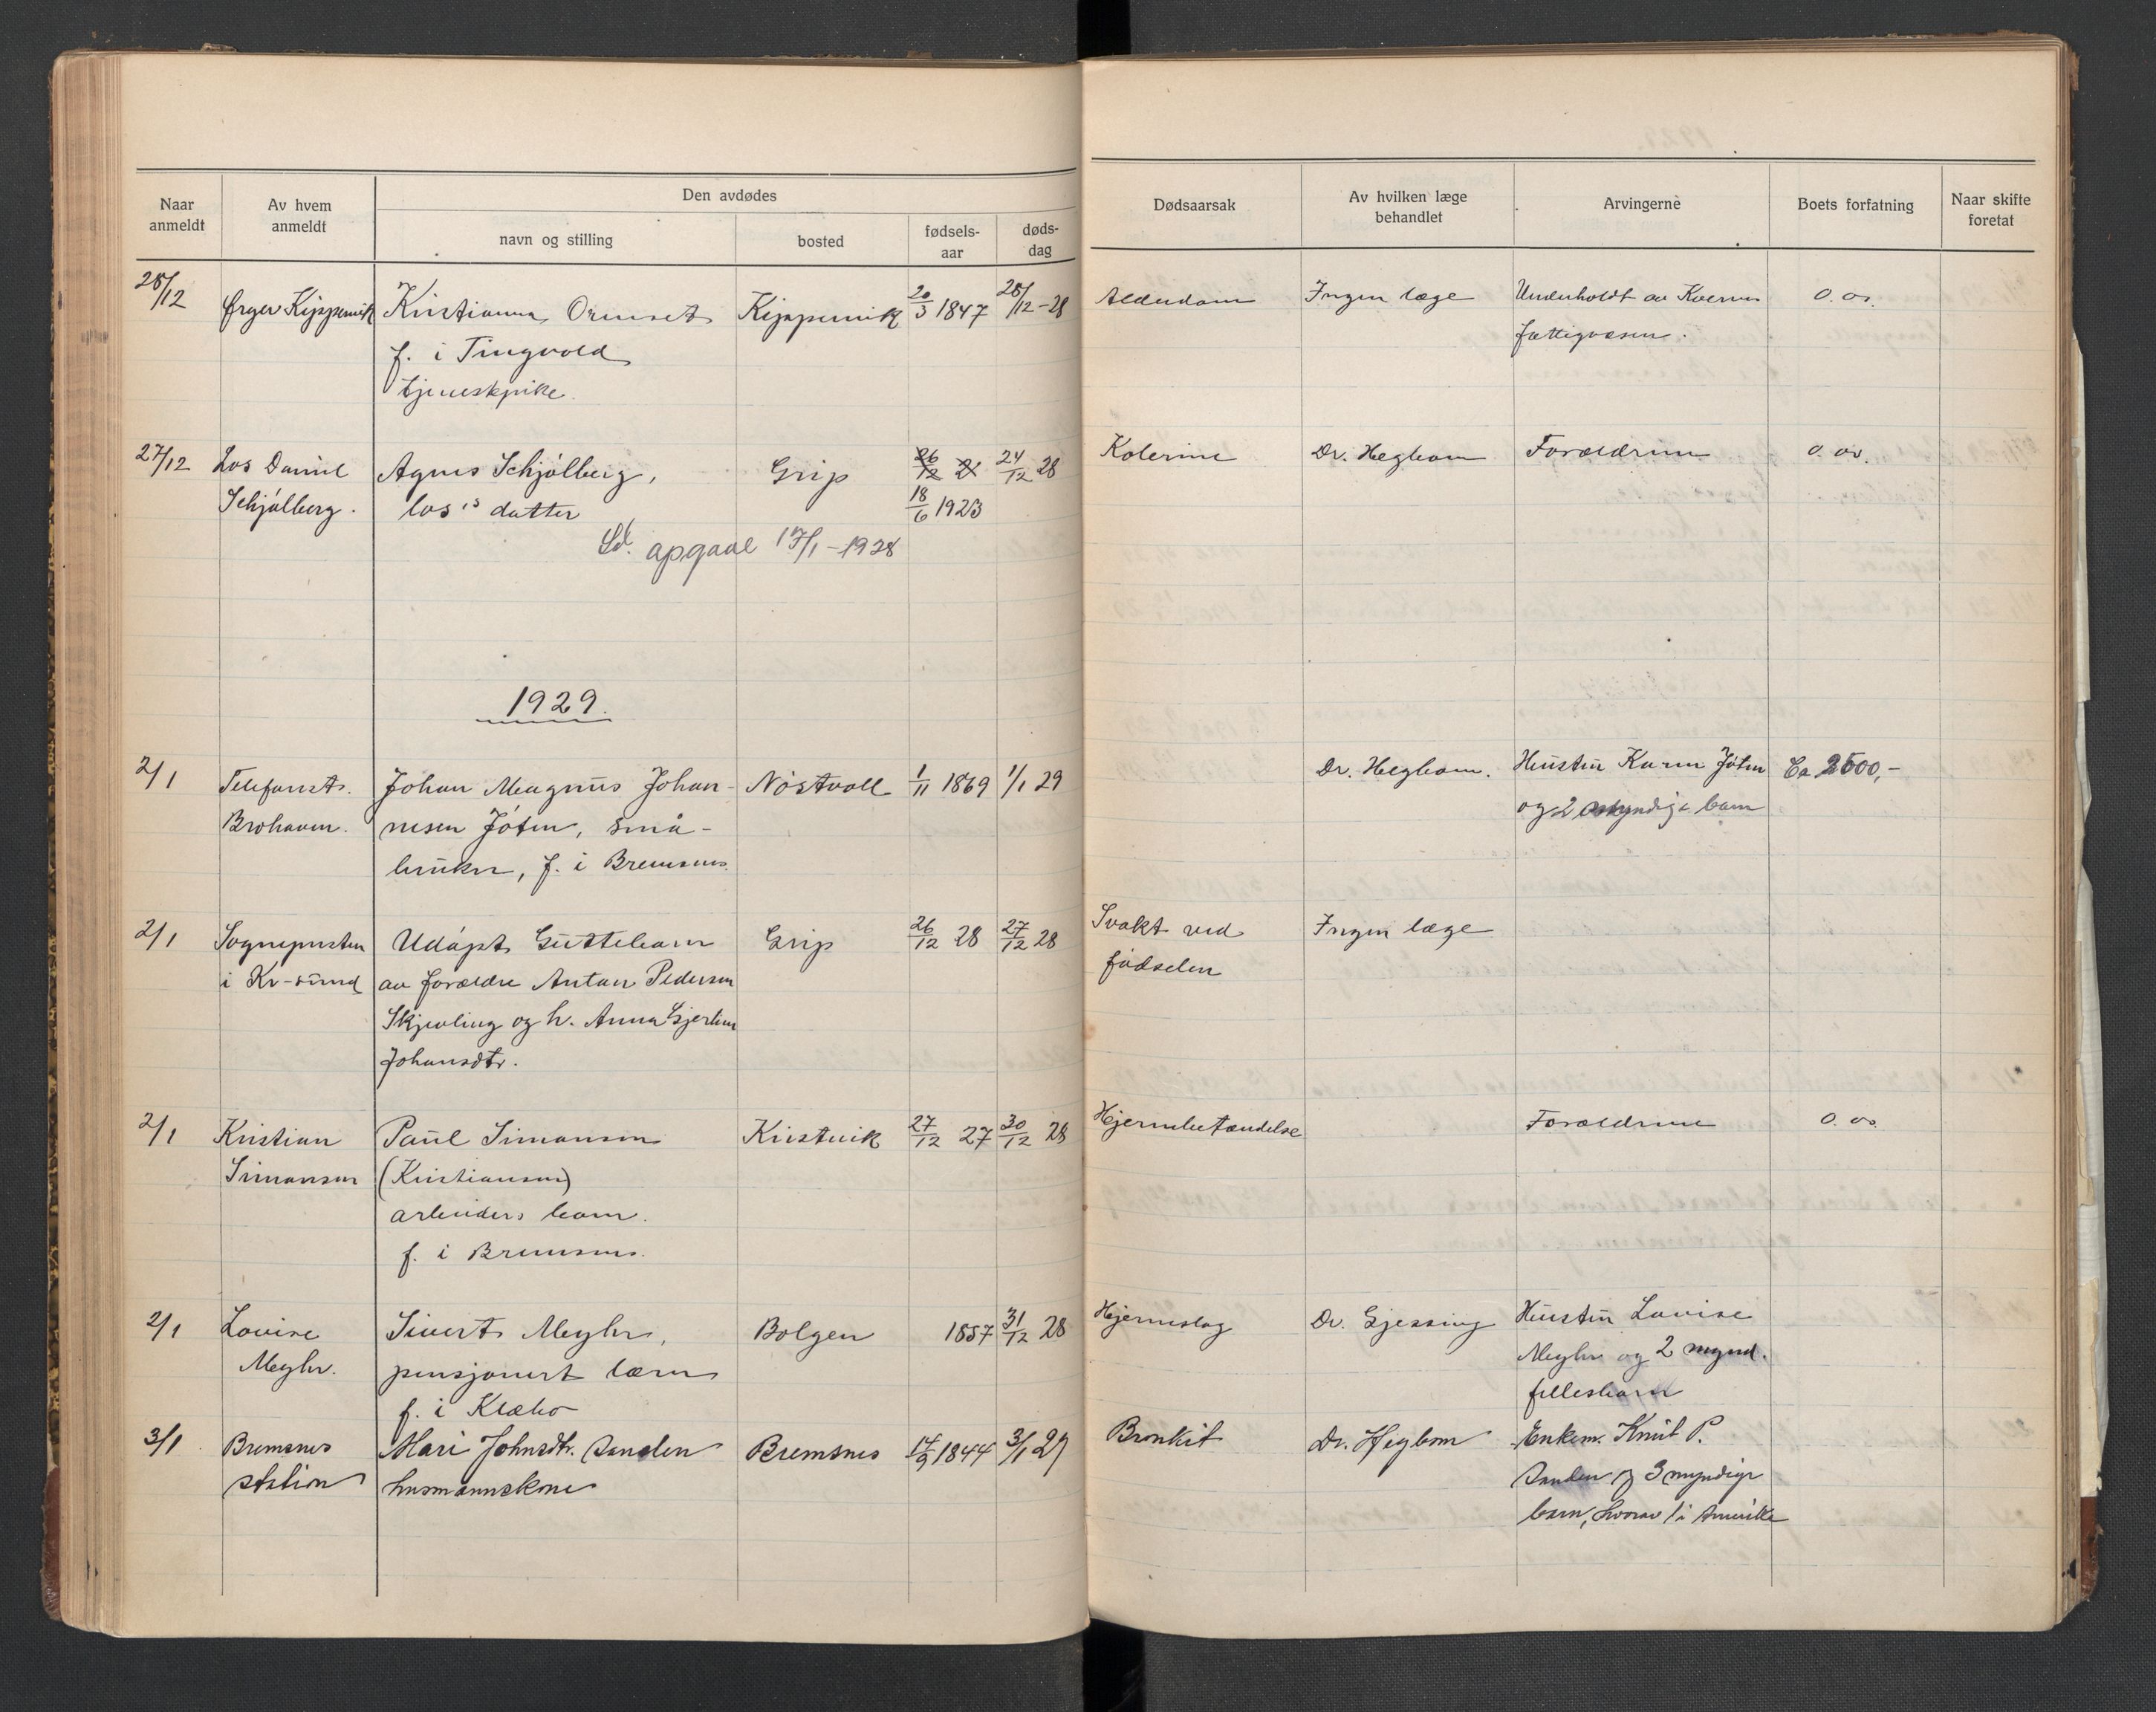 Naar anmeldt
Av hvem anmeldt
Den avdødes
navn og stilling
bosted
fødsels-aar
døds-dag
Dødsaarsak
Av hvilken læge behandlet
Arvingerne
Boets forfatning
Naar skifte foretat
28/12 Kristianna Ormset Kippervik 20/3 1847 28/12-28 Alderdom Ingen læge Underholdt av Kvernes 0. os.
f. i Tingvold fattigvæsen.
tjenestepike
27/12 Los Daniel Agnes Schjólberg, Grip 26/12 21 24/12 28 Kolerine Dr. Hegbom Forældrene 0. os.
Schjólberg. los's datter 18/6 1923
Sd. apgaae 17/1-1928
1929.
2/1 Telefonst. Johan Magnus Johan- Nöstvoll 1/11 1869 1/1 29 Dr. Hegbom. Hustru Karen Jóten Ca 2500,-
Brohaven. nesen Jóten, små- og 2 myndige barn
bruker, f. i Bremsnes.
2/1 Sogneprsten Udópt Guttebarn Grip 26/12 28 27/12 28 Svakt ved Ingen læge
i Kr-sund av forældre Anton Pedersen fødselen
Skjevling og h. Anna Gjertine
Johansdtr.
2/1 Kristian Paul Simonsen Kristvik 27/12 27 30/12 28 Hjernebetændelse Forældrene 0. os.
Simonsen (Kristiansen)
arbeiders barn.
f. i Bremsnes.
2/1 Lovise Sivert Myhr, Bolgen 1857 31/12 28 Hjerneslag Dr. Gjessing Hustru Lovise
Myhr. pensjonert lærer Myhr og 2 mynd.
f. i Klæbo fellesbarn
3/1 Bremsnes Mari Johnsdtr. Sanden Bremsnes 14/9 1844 3/1 29 Bronkit Dr. Hegbom Enkem. Knut P.
station husmannskone Sanden og 3 myndige
barn, hvorav 1 i Amerika